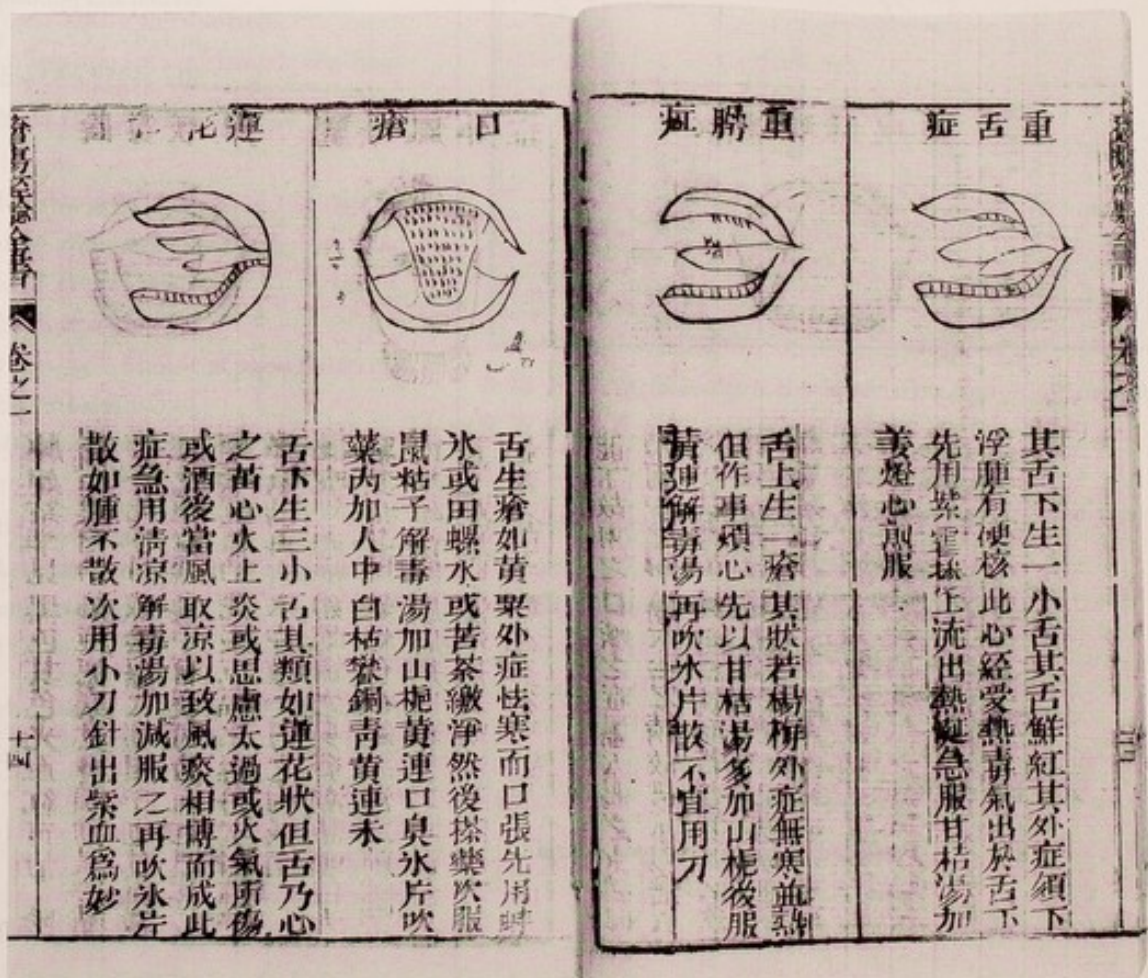 重舌症
其舌下生一小舌其舌鮮紅其外症頦下
浮腫有硬核此心經受熱毒氣出於舌下
先用紫雪抹上流出熱涎急服甘桔湯加
姜燈心煎服
重腭症
舌上生一瘡其狀若楊梅外症無寒並熱
但作事煩心先以甘桔湯多加山梔後服
黃連解毒湯再吹氷片散不宜用刀
口瘡
舌生瘡如黃粟外症怯寒而口張先用
氷或田螺水或苦茶繳淨然後搽藥次服
鼠粘子解毒湯加山梔黃連口臭氷片吹
藥內加人中白枯礬銅青黃連末
蓮花
舌下生三小舌其類如蓮花狀但舌乃心
之苗心火上炎或思慮太過或火氣所傷
或酒後當風取凉以致風痰相博而成此
症急用淸凉解毒湯加減服之再吹氷片
散如腫不散次用小刀針出紫血爲妙
卷之一
十四